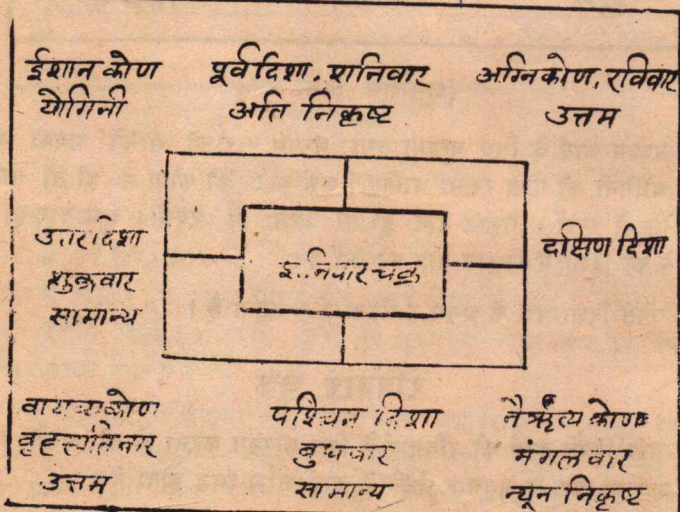 ईशान कोण
योगिनी
पूर्व दिशा, शनिवार
अति निकृष्ट
अग्नि कोण, रविवार
उत्तम
उत्तर दिशा
शुक्रवार
सामान्य
शनिवार चक्र
दक्षिण दिशा
वायव्य कोण
वृहस्पतिवार
उत्तम
पश्चिम दिशा
बुधवार
सामान्य
नैर्ऋत्य कोण
मंगलवार
न्यून निकृष्ट